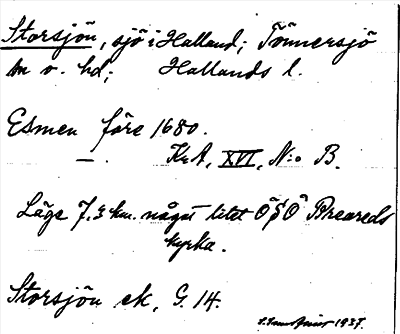 Storsjön, sjö i Halland; Tönnersjö
sn o. hd; Hallands l.
Esmen före 1680.
— KrA, XVI, N:o B.
Läge 7.3 km. något litet ÖSÖ Breareds
kyrka.
Storsjön ek. G. 14.
1937.